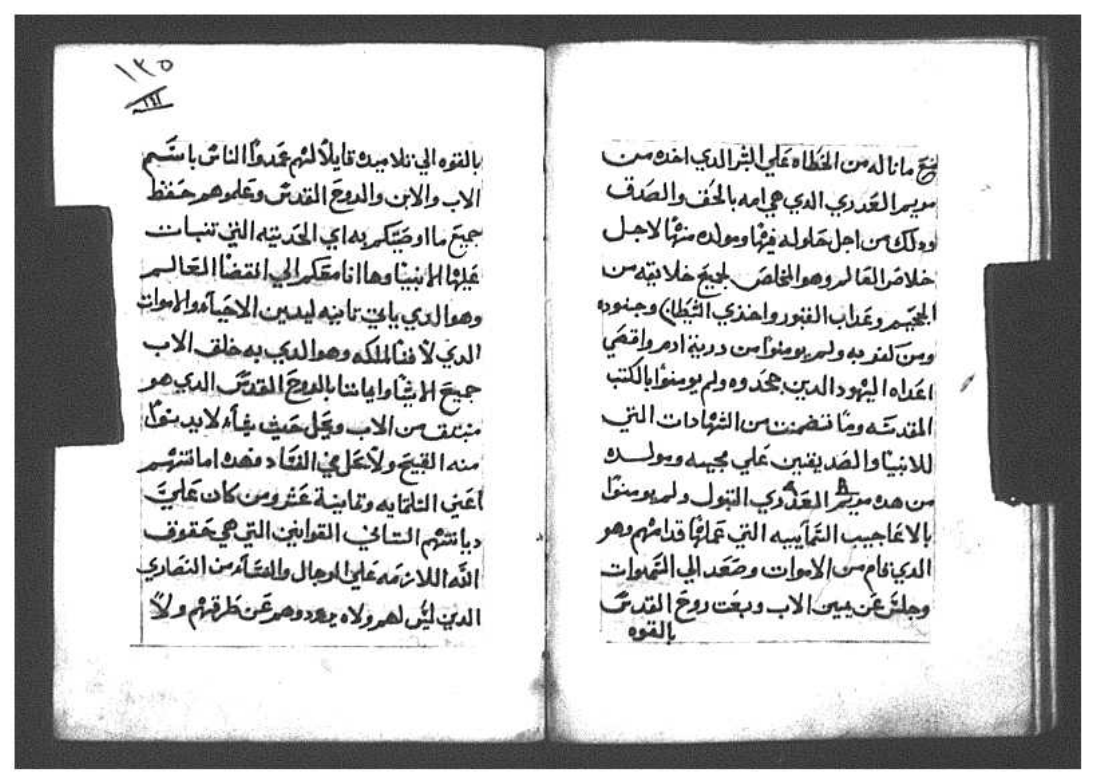 جميع ما ناله من الخطاه علي البشر الدي اخده من
مريم العدري الدي هي امه بالحق والصدق
ودلك من اجل حلوله فيها ومولده منها لاجل
خلاص العالم وهو المخلص لجميع خلايقه من
الجحيم وعداب القبور واخذي الشيطان وجنوده
ومن كفر به ولم يومنوا من درية ادم واقصي
اعداه اليهود الدين جحدوه ولم يومنوا بالكتب
المقدسه وما تضمنت من الشهادات التي
للانبيا والصديقين علي مجيه ومولده
من هده مريم العدري البتول ولم يومنوا
بالاعاجيب السمآييه التي عملها قدامهم وهو
الدي قام من الاموات وصعد الي السموات
وجلس عن يمين الاب وبعت روح القدس
بالقوه
١٣٥
بالقوه الي تلاميده قايلا لهم عمدوا الناس باسم
الاب والابن والروح القدس وعلموهم حفظ
جميع ما اوصيتكم به اي الحديته التي تنبات
عليها الانبيا وها انا معكم الي انقضا العالم
وهو الدي ياتي تانيه ليدين الاحيآء والاموات
الدي لا فنا لملكه وهو الدي به خلق الاب
جميع الاشيا وايماننا بالروح القدس الدي هو
منبتق من الاب ويحل حيث يشآء لا يدينوا
منه القبيح ولا يحل في الفساد فهده امانتهم
اعني التلتمايه وتمانية عشر ومن كان علي
ديانتهم التاني القوانين التي هي حقوق
الله اللازمه علي الرجال والنسآء من النصاري
الدين ليس لهم ولاه يردوهم عن طرقهم ولا